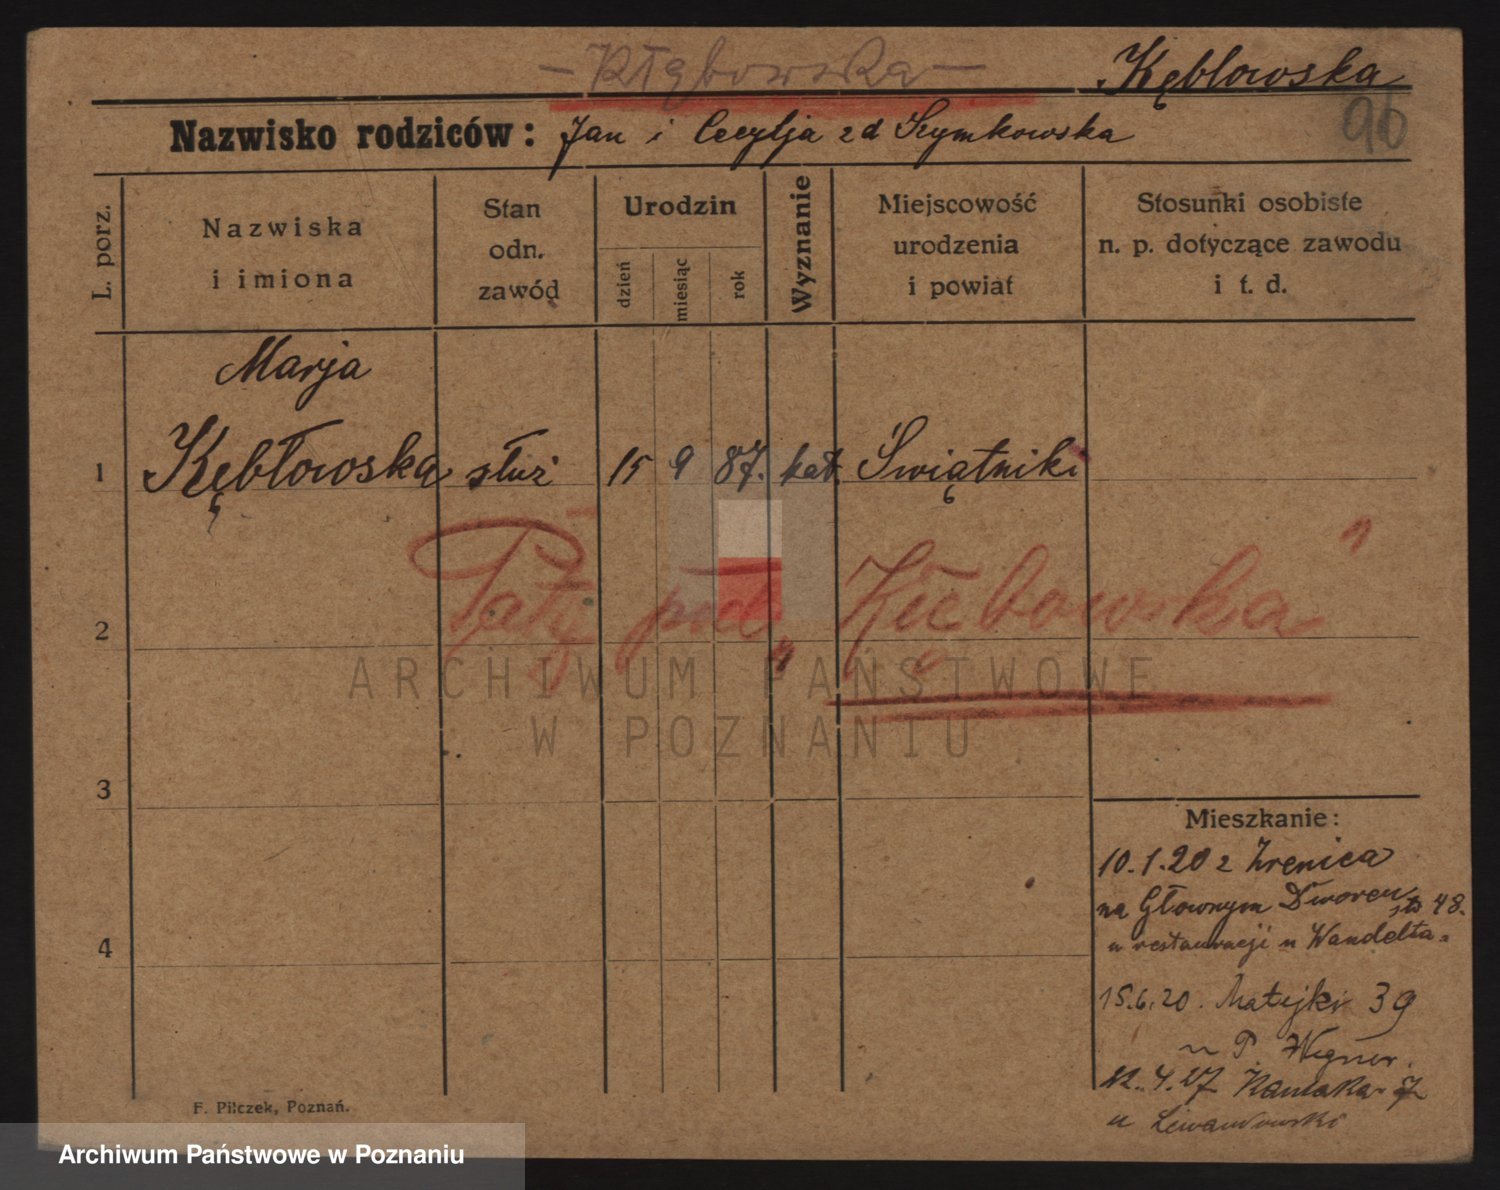 - Kłębowska -
Kębłowska
96
Nazwisko rodziców: Jan i Cecylja zd Szymkowska
L. porz.
Nazwiska
i imiona
Stan
odn.
zawód
Urodzin
dzień
miesiąc
rok
Wyznanie
Miejscowość
urodzenia
i powiat
Stosunki osobiste
n. p. dotyczące zawodu
i t. d.
Marja
1 Kębłowska służ 15 9 87. kat. Świątniki
2 Patrz pod „Kłębowska"
3
4
ARCHIWUM PAŃSTWOWE
W POZNANIU
Mieszkanie:
10.1.20 z Zrenica
na Głownym Dworcu 48.
u restauracji u Wandelta.
15.6.20. Matejki 39
u P. Wegner.
12.4.27 7
u Lewandowski
F. Pilczek, Poznań.
Archiwum Państwowe w Poznaniu